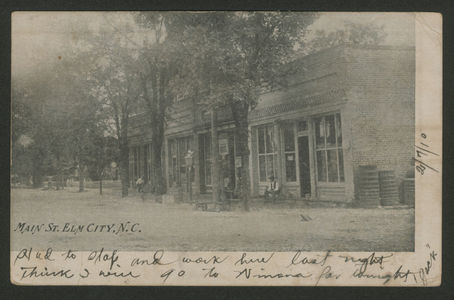 MAIN ST. ELM CITY, N.C.
2/7/10
Had to stop and work here last night
Think I will go to Winona for tonight,
"Jack"